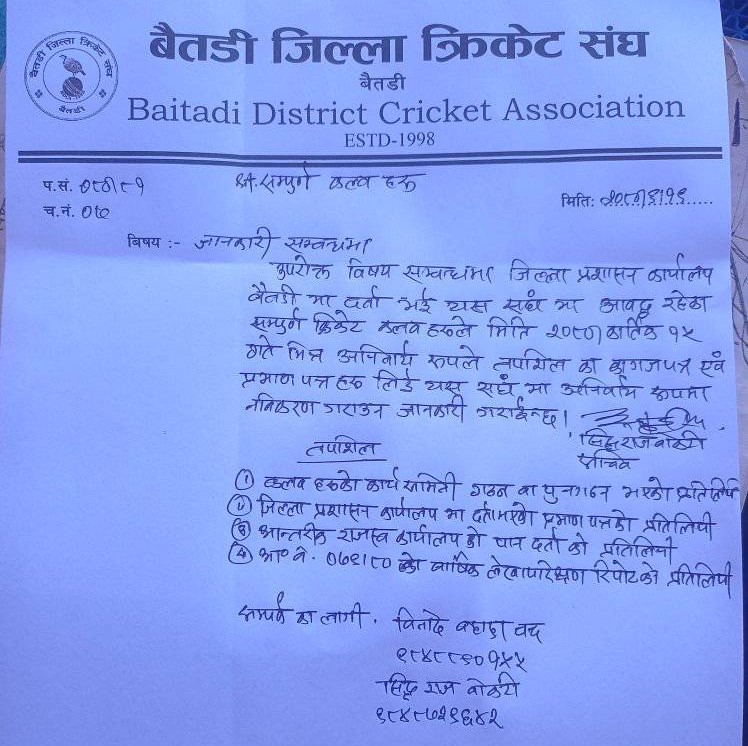 बैतडी जिल्ला क्रिकेट संघ
बैतडी
बैतडी जिल्ला क्रिकेट संघ
बैतडी
Baitadi District Cricket Association
ESTD-1998
प.सं. ०८०/८१
श्री सम्पुर्ण क्लव हरु
च.नं. ०१०
मिति: २०८०/६/१६.....
विषय :- जानकारी सम्वन्धमा
उपरोक्त विषय सम्वन्धमा जिल्ला प्रशासन कार्यालय
बैतडी मा दर्ता भई यस संघ मा आवद्ध रहेका
सम्पुर्ण क्रिकेट क्लव हरुले मिति २०८० कार्तिक १५
गते भित्र अनिवार्य रुपले तपशिल का कागजपत्र एवं
प्रमाण पत्र हरु लिई यस संघ मा अनिवार्य रूपमा
नविकरण गराउन जानकारी गराईन्छ।
सिद्धराज वोकटी
सचिव
तपशिल
① क्लव हरुको कार्य समिती गठन वा पुनगठन भएको प्रतिलिपी
② जिल्ला प्रशासन कार्यालय मा दर्ताभएको प्रमाण पत्रको प्रतिलिपी
③ आन्तरीक राजस्व कार्यालय को पान दर्ता को प्रतिलिपी
④ आ०व. ०७९/८० को वार्षिक लेखापरिक्षण रिपोटको प्रतिलिपी
सम्पर्क का लागी. विनोद वहादुर चन्द
९८४८८६०१५५
सिद्ध राज वोकटी
९८४८७२९६४२